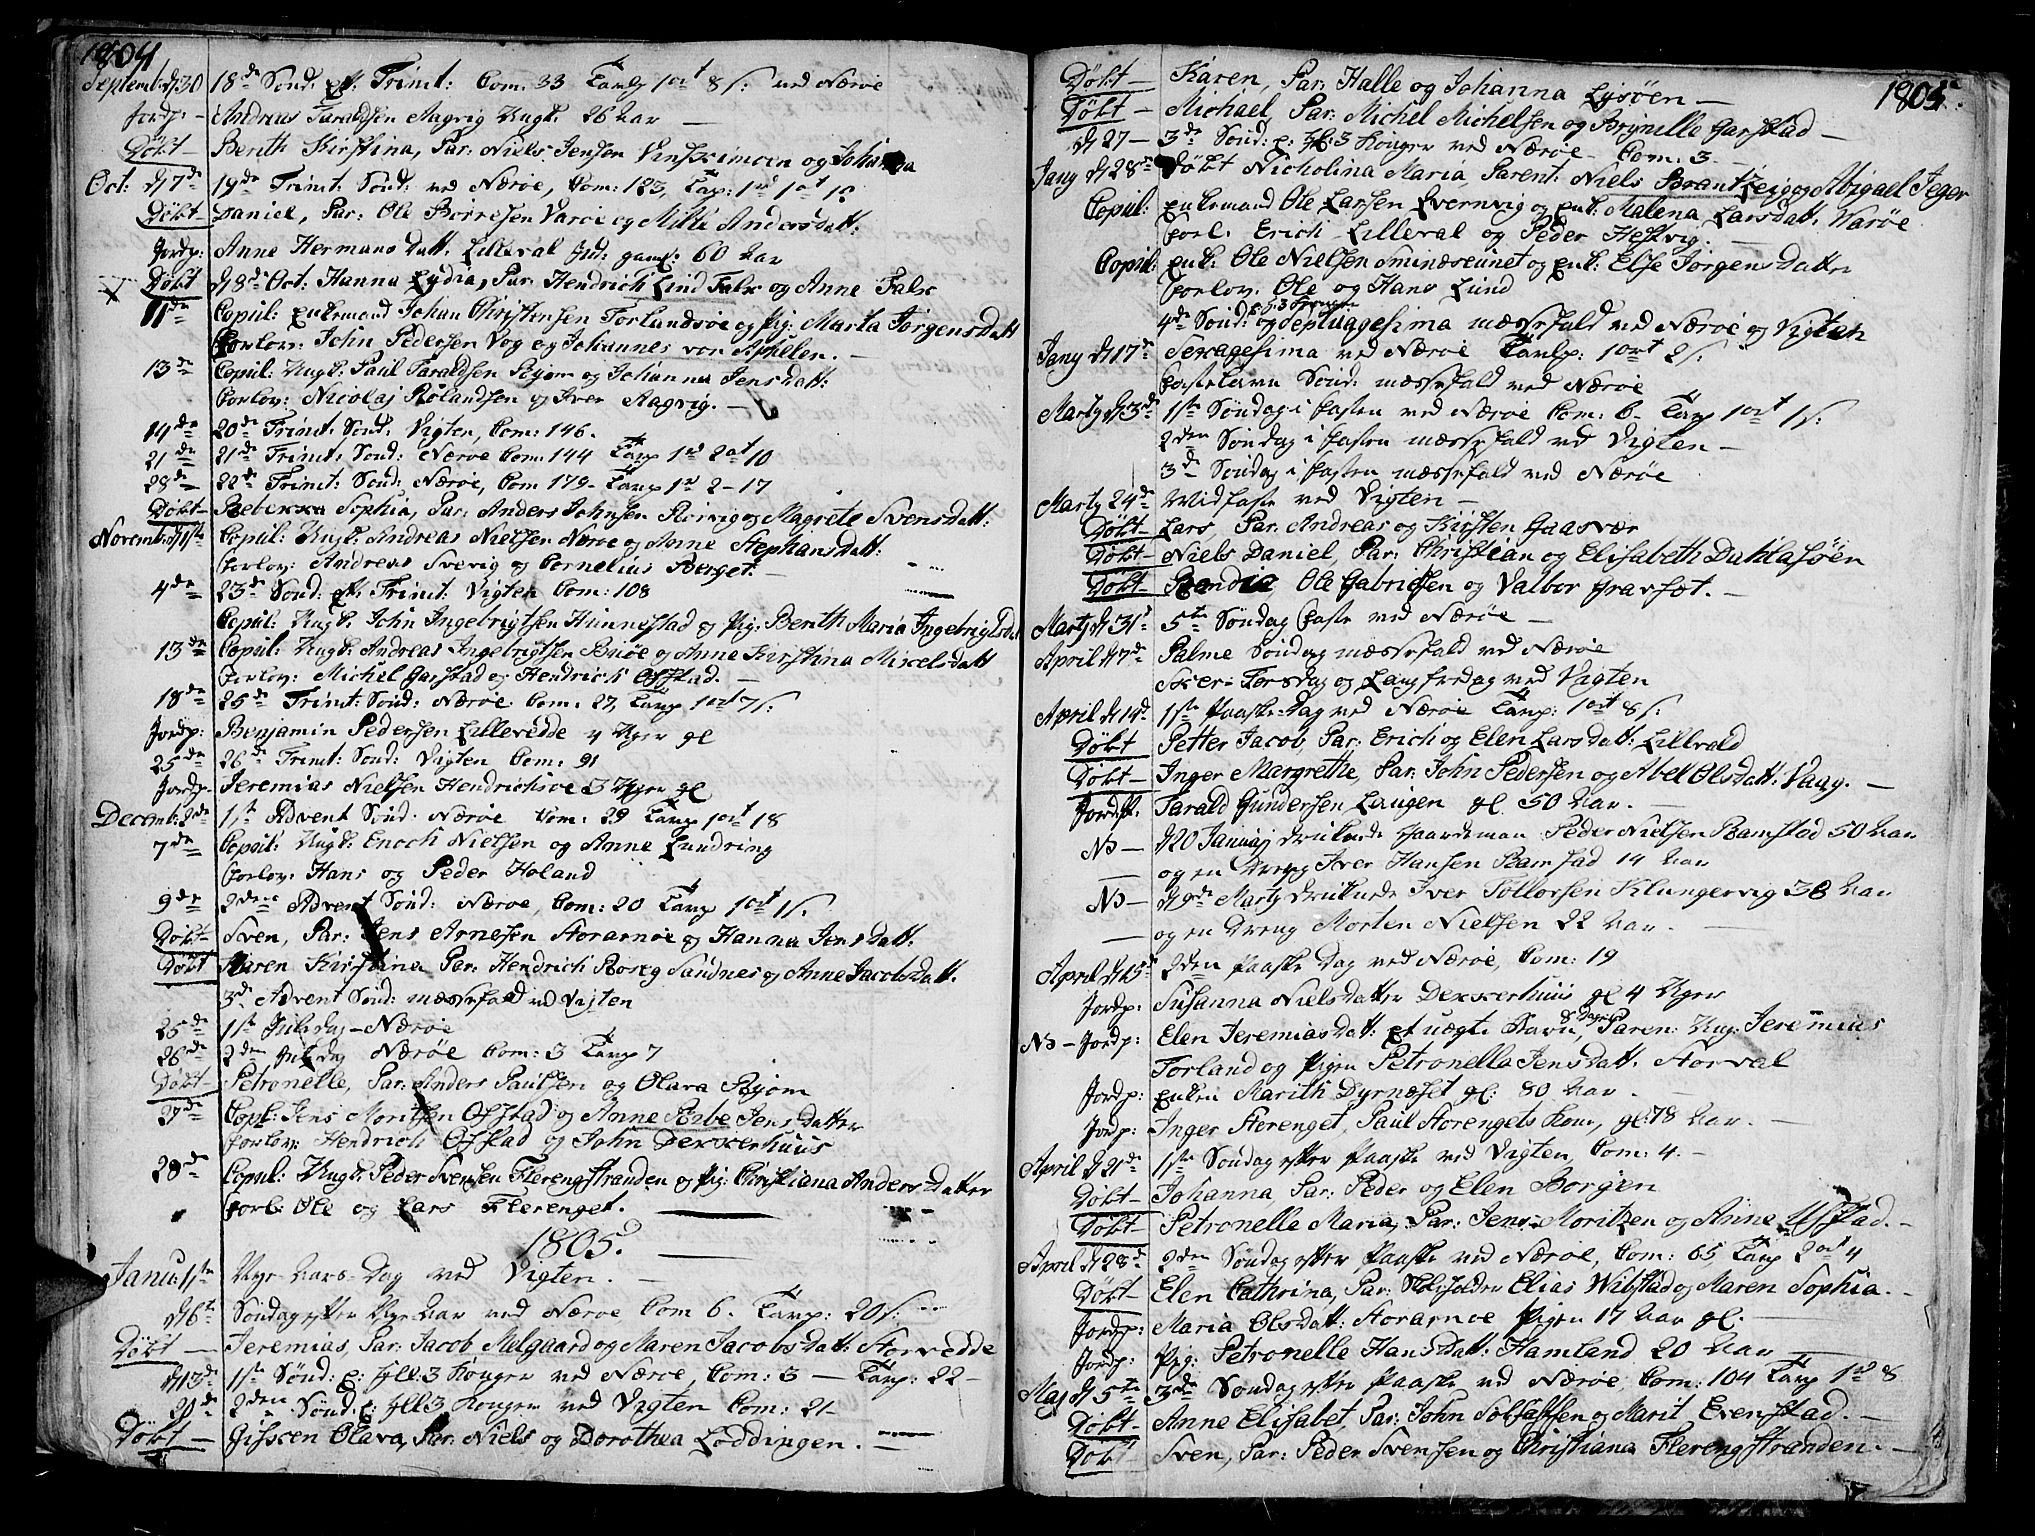 1804
Septemb: d 30 18de Sond: eft: Trinit: Com: 33 Tavlp 1ort 8 s: ved Nærøe
Jordp: – Andreas Taraldsen Aagvig Ungk: 26 Aar –
Døbt – Berith Kirstina, Par: Niels Jensen Vinskimoen og Johanna
Oct: d 7de 19de Trinit: Sond: ved Nærøe, Com: 123, Tavp: 1rd 1ort
Døbt – Daniel, Par: Ole Børresen Varøe og Mille Andersdatt:
Jordp: Anne Hermansdatt. Lilleval Ind: gaml: 60 Aar
Døbt d 8de Oct: Hanna Lydia, Par: Hendrich Lind Falx og Anne Falx
11de Copul: Enkemand Johan Christensen Forlandsøe og Pig: Marta Jørgensdatt
Forlov: John Pedersen Vog og Johannes von Aphelen. –
13de Copul: Ungk: Paul Taraldsen Ryom og Johanna Jensdatt:
Forlov: Nicolaj Rølandsen og Iver Aagvig. –
14de 20de Trinit: Sond: Vigten, Com: 146.
21de 21de Trinit: Sond: Nærøe Com: 144 Tavp 1rd 2ort 10
28de 22de Trinit: Sond: Nærøe, Com 179– Tavp 1rd 2 – 17
Døbt – Rebekka Sophia, Par: Anders Johnsen Rørvig og Magrete Svensdatt:
Novemb: d 1ste Copul: Ungk: Andreas Nielsen Nærøe og Anne Stephansdatt:
Forlov: Andreas Svevig og Cornelius Berget. –
4de 23de Sond: eft: Trinit: Vigten Com: 108
Copul: Ungk: John Ingebrigtsen Hunnestad og Pig: Berith Maria Ingebrigtsd
13de Copul: Ungk: Andreas Ingebrigtsen Buøe og Anne Kirstina Mickelsdatt
Forlov: Michel Garstad og Hendrich Ofstad. –
18de 25de Trinit: Sond: Nærøe Com: 27, Tavlp 1ort 7 s:
Jordp: Benjamin Pedersen Lilleredde 4 Uger gl
25de 26de Trinit: Sond: Vigten Com: 91
Jordp. Jeremias Nielsen Hendrichsøe 3 Uger gl
Decemb: 2de 1ste Advent Sond: Nærøe Com: 29 Tavlp 1ort 18
7de Copul: Ungk: Enoch Nielsen og Anne Lundring
Forlov: Hans og Peder Holand
9de 2den Advent Sond: Nærøe, Com: 20 Tavlp 1ort 1 s:
Døbt – Sven, Par: Jens Arnesen Storarnøe og Hanna Jensdatt.
Døbt Maren Kirstina Par: Hendrich Roseg Sandnes og Anne Jacobsdatt.
3de Advent Sond: mæssefald ved Vigten
25de 1ste Juledag – Nærøe
26de 2den Juledag Nærøe Com: 3 Tavlp 7
Døbt – Petronelle, Par: Anders Paulsen og Olava Ryom
27de Copl: Jens Moritsen Ofstad og Anne Rebe Jensdatter
Forlov: Hendrich Ofstad og John Dekkerhuus
28de Copul: Ungk: Peder Svensen Flerengstranden og Pig: Christiana Andersdatter
Forl: Ole og Lars Flerenget.
1805.
Janu: 1ste Nye Aars – Dag ved Vigten. –
d 6te Søndag efter Nye Aar ved Nærøe Com 6. Tavp: 20 s:
Døbt – Jeremias, Par: Jacob Melgaard og Maren Jacobsdatt: Storredde
d 13de 1ste Sønd: e: Hll: 3 Konger ved Nærøe, Com: 3 – Tavp: 22 –
20de 2den Sønd: e: Hll: 3 Konger ved Vigten Com: 21–
Døbt – Gissten Olava, Par: Niels og Dorothea Loddingen. –
Døbt – Karen, Par: Halle og Johanna Lysøen –
1805.
Døbt – Michael, Par: Michel Michelsen og Brynille Garstad –
d 27 – 3de Sønd: e: Hl: 3 Konger ved Nærøe – Com: 3 –
Jany d 28de Døbt Nicholina Maria, Parent: Niels Brantzeig og Abigael Jeger
Copul: Enkemand Ole Larsen Evernvig og Enk: Malena Larsdatt. Varøe
Forl: Erich Lilleval og Peder Hestvig. –
Copul: Enk: Ole Nielsen Smineseunet og Enk: Else Jørgensdatter
Forlov: Ole og Hans Lund
4de Sønd: e. H. 3 Konger og Septuagesima mæssefald ved Nærøe og Vigten
Jany d 17de Sexagesima ved Nærøe Tavlp: 1ort 2 s:
Fastelavn Sønd: mæssefald ved Nærøe
Martj d 3de 1ste Søndag i Fasten ved Nærøe Com: 6 – Tavp 1ort 1 s:
2den Søndag i Fasten mæssefald ved Vigten –
3de Søndag i Fasten mæssefald ved Nærøe
Martj 24de Midfaste ved Vigten –
Døbt – Lars, Par: Andreas og Kirsten Gaasvær
Døbt – Niels Daniel, Par: Christian og Elisabeth Dahlasøen
Døbt – Randia, Ole Gabrielsen og Valbor Gravset. –
Martj d 31te 5te Søndag Faste ved Nærøe –
April d 7de Palme Søndag mæssefald ved Nærøe
Skier – Torsdag og Langfredag ved Vigten
April d 14de 1ste Paaske – Dag ved Nærøe Tavp: 1ort 8 s:
Døbt Petter Jacob, Par: Erich og Elen Larsdatt: Lillvald
Døbt – Inger Margrethe, Par: John Pedersen og Abell Olsdatt: Vaag. –
Jordf: Tarald Gundersen Laugen gl 50 Aar. –
NB – d 20 Januaj druknede Gaardeman Peder Nielsen Ramstad 50 Aar
og en Dreng Iver Hansen Ramstad 14 Aar
NB – d 9de Martj druknede Iver Tollorsen Klungervig 38 Aar
– og en Dreng Morten Nielsen 22 Aar. –
April d 15de 2den Paaske Dag ved Nærøe, Com: 19
Jordp: Susanna Nielsdatter Dekkerhuus gl 4 Uger
NB – Jordp: Elen Jeremiasdatt: et uægte Barn, 8 Dage, Paren: Ung: Jeremias
Forland og Pigen Petronella Jensdatt. Storval
Jordp: Enken Marith Dyrnæset gl: 80 Aar. –
Jordp: Inger Flerenget, Paul Florengets Kone, gl: 78 Aar. –
April d 21de 1ste Søndag efter Paaske ved Vigten, Com: 4. –
Døbt – Johanna, Par: Peder og Elen Borgen
Døbt – Petronelle Maria, Par: Jens Moritzen og Anne Ufstad. –
April d 28de 2den Søndag efter Paaske ved Nærøe, Com: 65 Tavp 2ort 4
Døbt – Elen Cathrina, Par: Skoleholder Elias Wibstad og Maren Sophia. –
Jordp: Maria Olsdatt: Storarnøe Pigen 17 Aar gl. –
Jordp: Pig: Petronelle Hansdatt: Hamland 20 Aar –
Maj d 5te 3de Søndag efter Paaske ved Nærøe, Com: 104 Tavp 1rd 8
Døbt – Anne Elisabet, Par: John Solfastsen og Marit Evenstad. –
Døbt Sven, Par: Peder Svensen og Christiana Flerengstranden. –